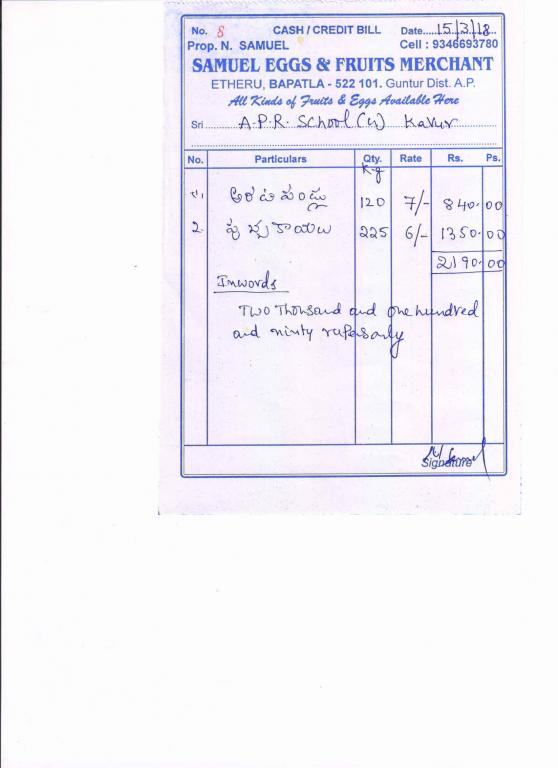 No. 8 CASH / CREDIT BILL Date 15/3/18
Prop. N. SAMUEL Cell : 9346693780
SAMUEL EGGS & FRUITS MERCHANT
ETHERU, BAPATLA - 522 101. Guntur Dist. A.P.
All Kinds of Fruits & Eggs Available Here
Sri A.P.R. School (U) Kavur
No. Particulars Qty. Rate Rs. Ps.
Kg
1. అరటి పండ్లు 120 7/- 840.00
2. పుచ్చకాయలు 225 6/- 1350.00
2190.00
Inwords
Two Thousand and one hundred
and ninty rupees only
Signature